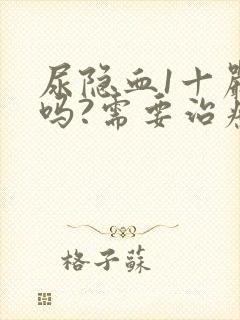 尿隐血1十严
吗?需要治疗
格子蘇